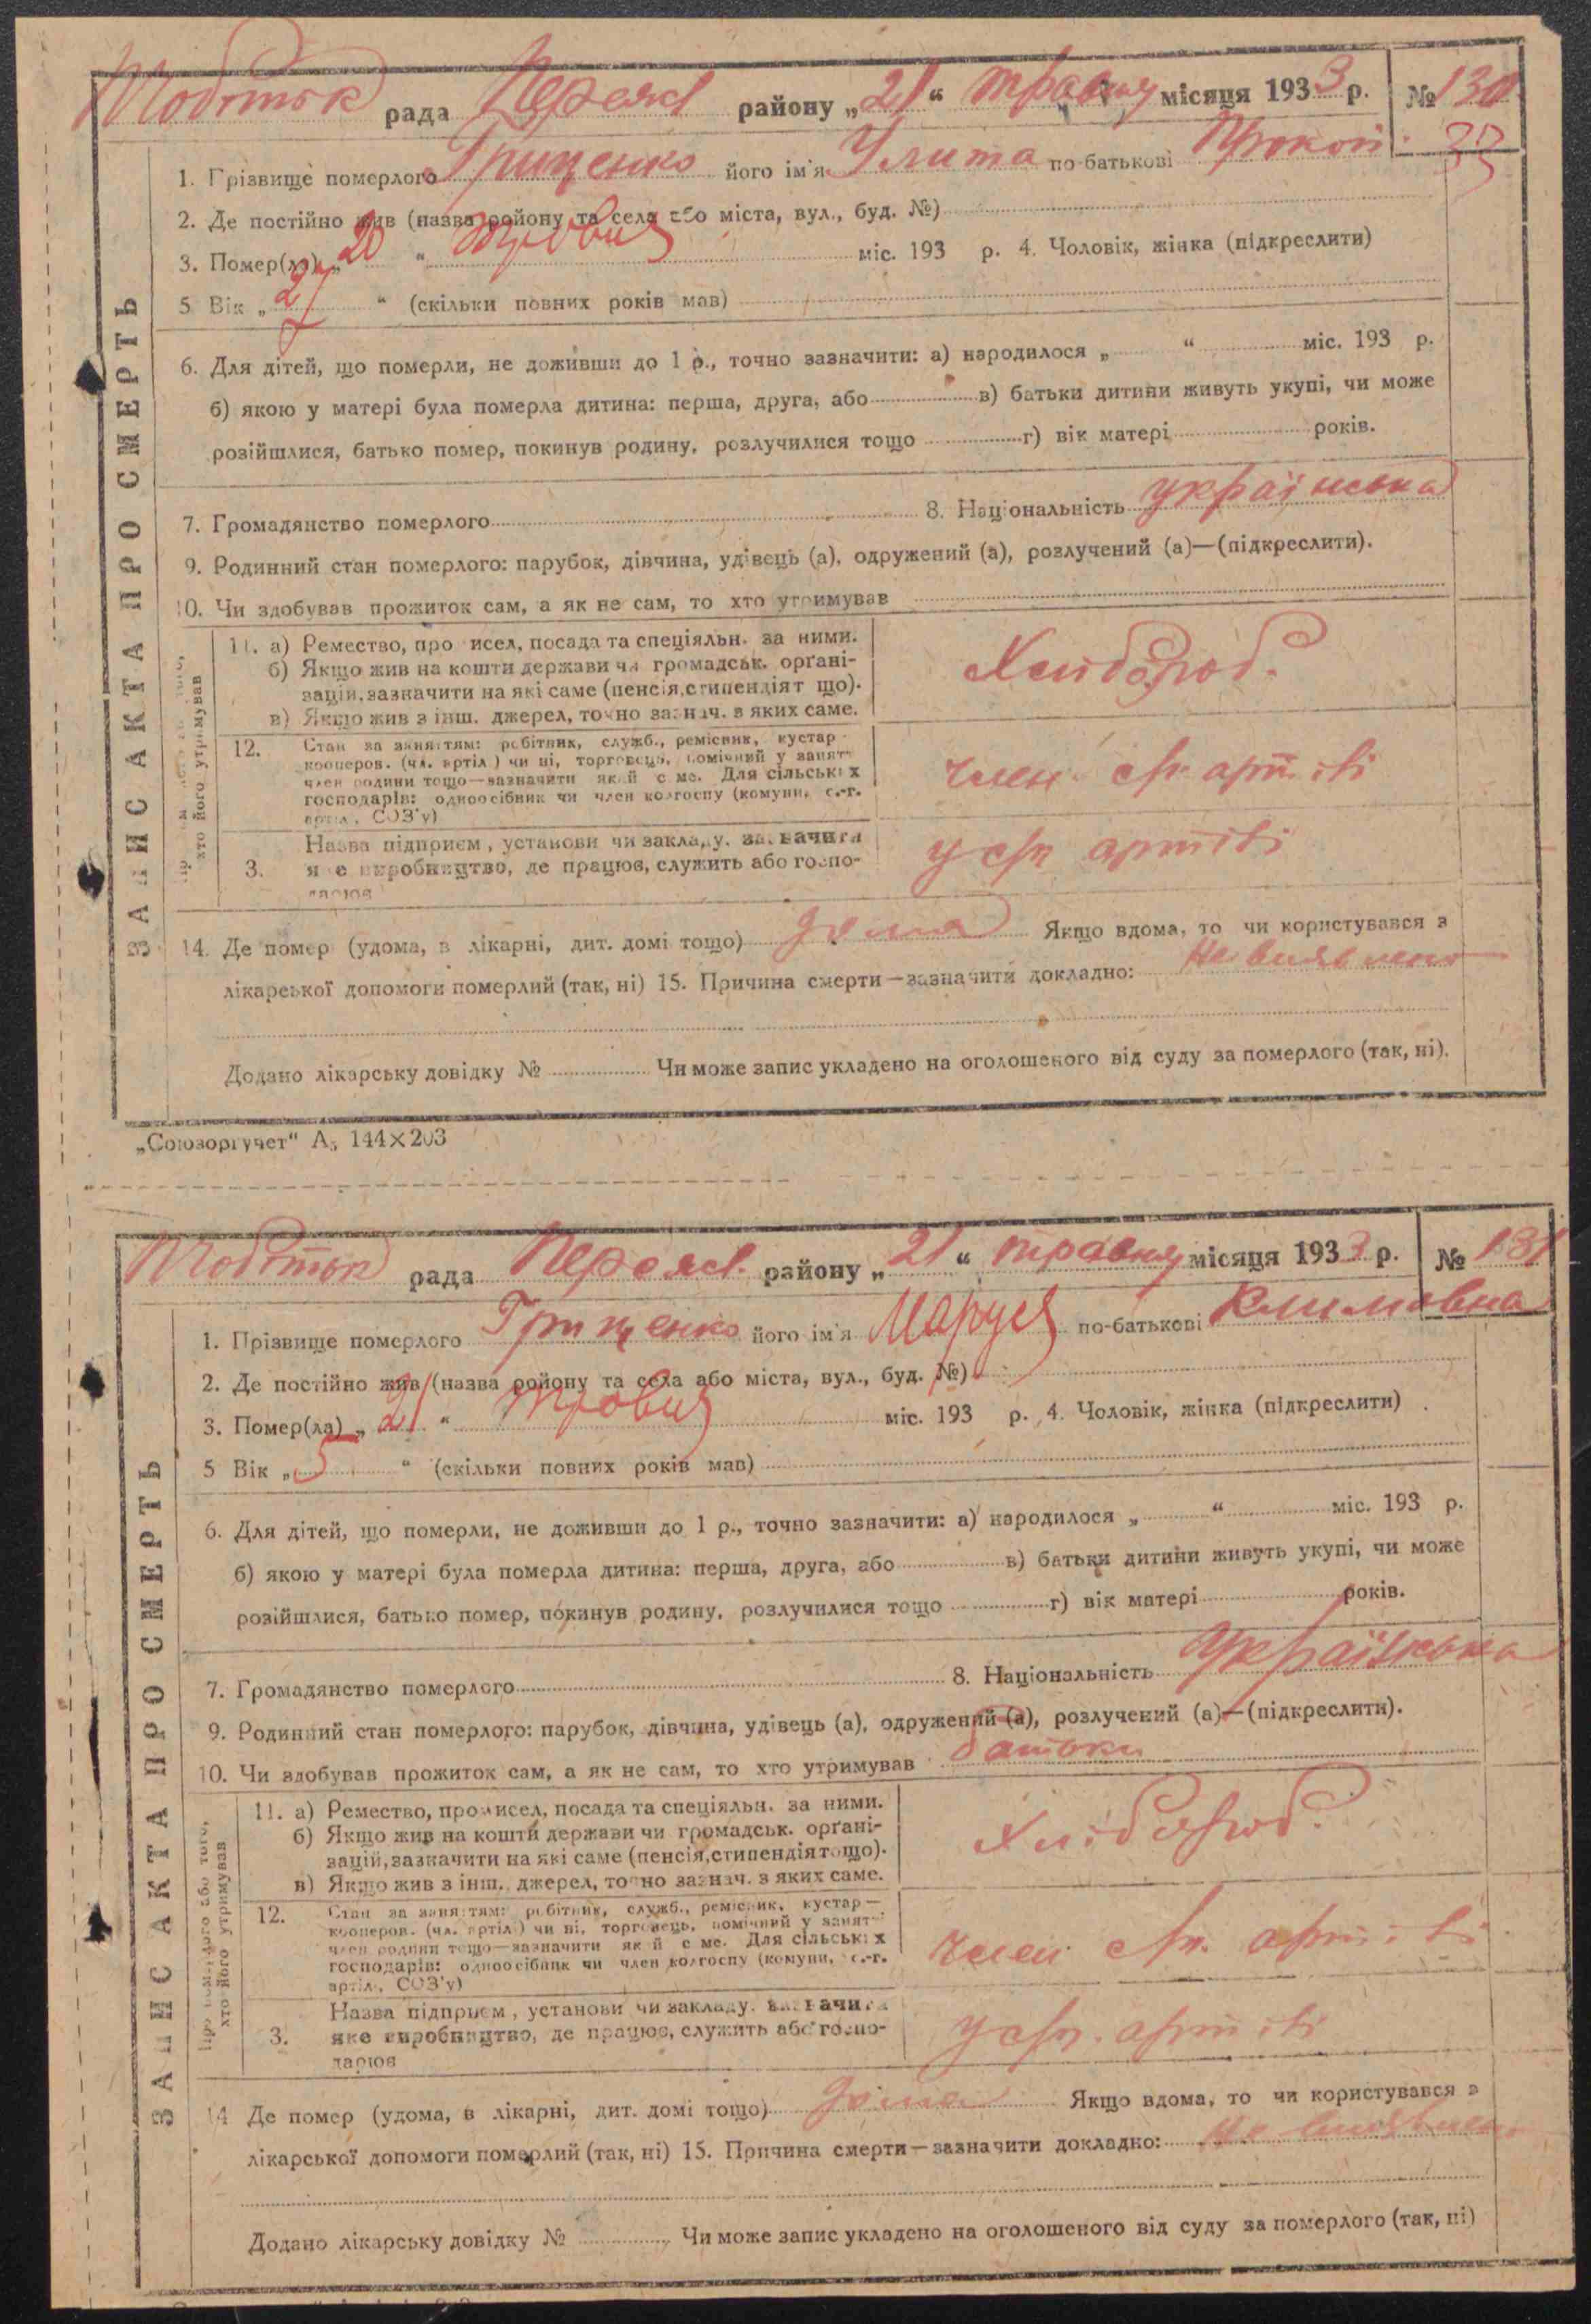 рада Переясл району „21“ травня місяця 1933 р. № 130
33
1. Прізвище померлого Гриценко його ім'я Улита по-батькові Прокоп.
2. Де постійно жив (назва району та села або міста, вул., буд. №)
3. Помер(ла) „20“ травня міс. 193 р. 4. Чоловік, жінка (підкреслити)
5 Вік „27“ (скільки повних років мав)
6. Для дітей, що померли, не доживши до 1 р., точно зазначити: а) народилося „ “ міс. 193 р.
б) якою у матері була померла дитина: перша, друга, або в) батьки дитини живуть укупі, чи може
розійшлися, батько помер, покинув родину, розлучилися тощо г) вік матері років.
7. Громадянство померлого 8. Національність українська
9. Родинний стан померлого: парубок, дівчина, удівець (а), одружений (а), розлучений (а)—(підкреслити).
10. Чи здобував прожиток сам, а як не сам, то хто утримував
ЗАПИС АКТА ПРО СМЕРТЬ
хто його утримував
11. а) Ремество, промисел, посада та спеціяльн. за ними.
б) Якщо жив на кошти держави чи громадськ. орґані-
зацій, зазначити на які саме (пенсія, стипендія тощо).
в) Якщо жив з інш. джерел, точно зазнач. з яких саме.
Хлібороб.
12. Стан за заняттям: робітник, служб., ремісник, кустар —
кооперов. (чл. артіл.) чи ні, торговець, помічний у занятт
член родини тощо—зазначити який саме. Для сільських
господарів: одноосібник чи член колгоспу (комуни, с.-г.
артіл., СОЗ'у)
член с/г. артілі
3. Назва підприєм., установи чи закладу. зазначити
яке виробництво, де працює, служить або госпо-
дарює
у с/г артілі
14. Де помер (удома, в лікарні, дит. домі тощо) дома Якщо вдома, то чи користувався з
лікарської допомоги померлий (так, ні) 15. Причина смерти—зазначити докладно: Не виявлено
Додано лікарську довідку № Чи може запис укладено на оголошеного від суду за померлого (так, ні).
„Союзоргучет“ А5 144×203
рада Переясл. району „21“ травня місяця 1933 р. № 131
1. Прізвище померлого Гриценко його ім'я Маруся по-батькові Климовна
2. Де постійно жив (назва району та села або міста, вул., буд. №)
3. Помер(ла) „21“ травня міс. 193 р. 4. Чоловік, жінка (підкреслити)
5 Вік „5“ (скільки повних років мав)
6. Для дітей, що померли, не доживши до 1 р., точно зазначити: а) народилося „ “ міс. 193 р.
б) якою у матері була померла дитина: перша, друга, або в) батьки дитини живуть укупі, чи може
розійшлися, батько помер, покинув родину, розлучилися тощо г) вік матері років.
7. Громадянство померлого 8. Національність Українська
9. Родинний стан померлого: парубок, дівчина, удівець (а), одружений (а), розлучений (а)—(підкреслити).
10. Чи здобував прожиток сам, а як не сам, то хто утримував батьки
ЗАПИС АКТА ПРО СМЕРТЬ
Про померлого або того,
хто його утримував
11. а) Ремество, промисел, посада та спеціяльн. за ними.
б) Якщо жив на кошти держави чи громадськ. орґані-
зацій, зазначити на які саме (пенсія, стипендія тощо).
в) Якщо жив з інш. джерел, точно зазнач. з яких саме.
Хлібороб.
12. Стан за заняттям: робітник, служб., ремісник, кустар —
кооперов. (чл. артіл.) чи ні, торговець, помічний у занятт
член родини тощо—зазначити який саме. Для сільських
господарів: одноосібник чи член колгоспу (комуни, с.-г.
артіл., СОЗ'у)
член с/г. артілі
3. Назва підприєм., установи чи закладу. зазначити
яке виробництво, де працює, служить або госпо-
дарює
у с/г. артілі
14 Де помер (удома, в лікарні, дит. домі тощо) дома Якщо вдома, то чи користувався з
лікарської допомоги померлий (так, ні) 15. Причина смерти—зазначити докладно: Не виявлено
Додано лікарську довідку № Чи може запис укладено на оголошеного від суду за померлого (так, ні)